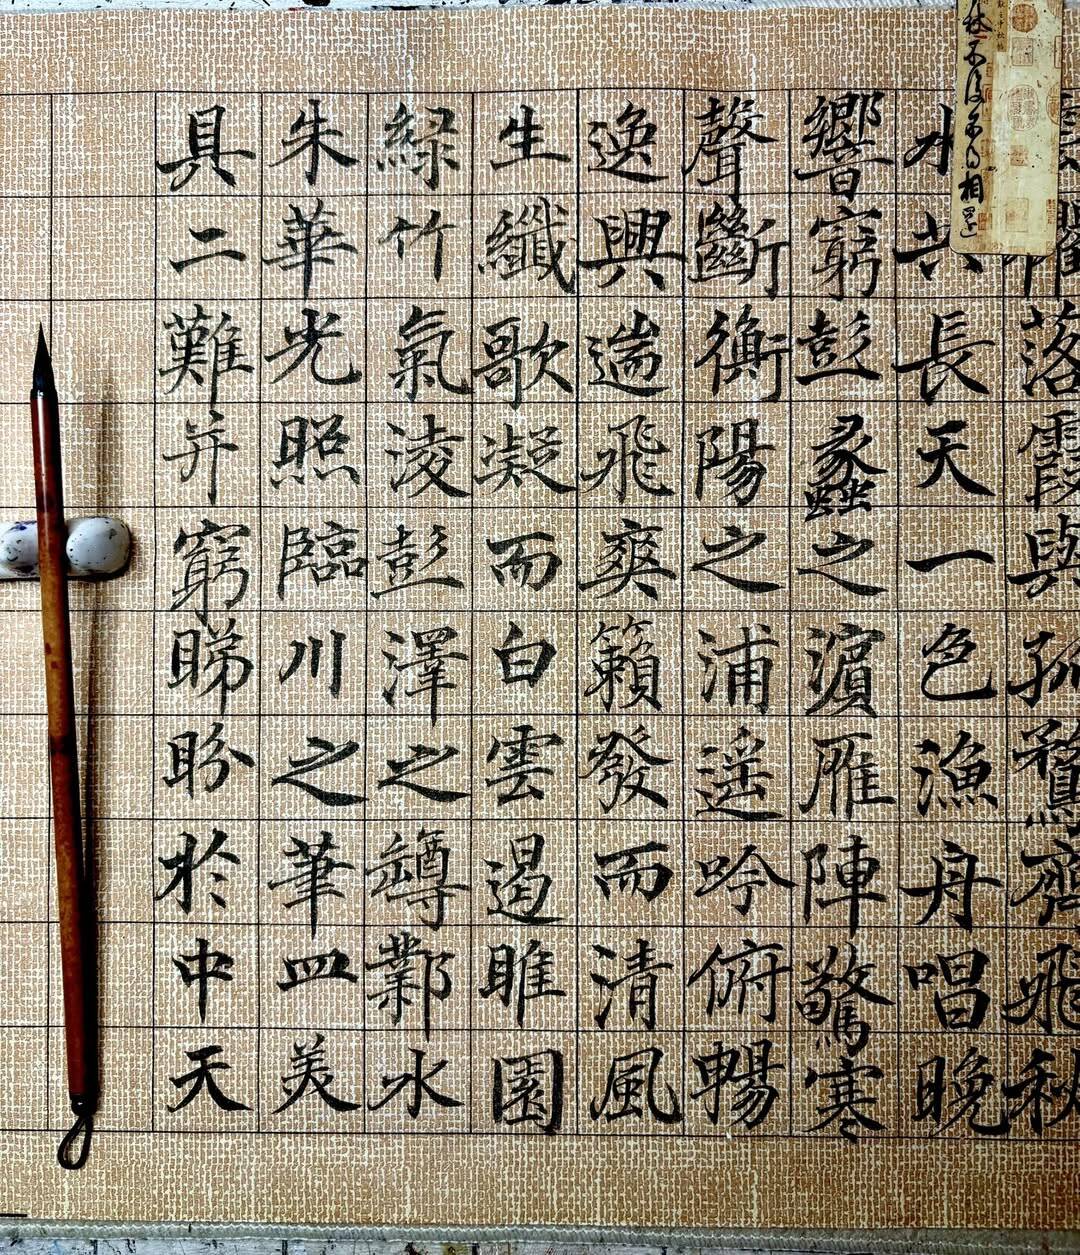 落霞與孤鶩齊飛秋
水共長天一色漁舟唱晚
響窮彭蠡之濱雁陣驚寒
聲斷衡陽之浦遥吟俯暢
逸興遄飛爽籟發而清風
生纖歌凝而白雲遏睢園
綠竹氣淩彭澤之罇鄴水
朱華光照臨川之筆四美
具二難并窮睇盼於中天
不復不得相還